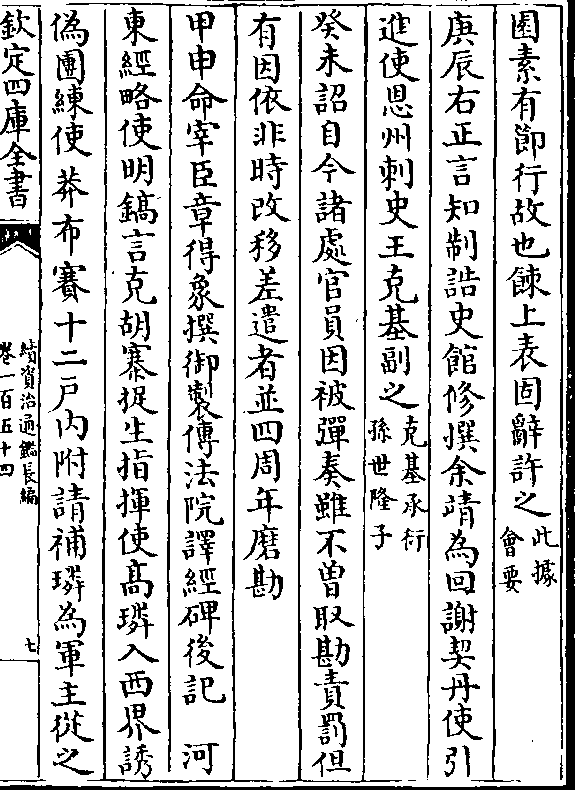 園素有節行故也餗上表固辭許之此據
會要
庚辰右正言知制誥史館修撰余靖為回謝契丹使引
進使恩州刺史王克基副之克基承衍
孫世隆子
癸未詔自今諸處官員因被彈奏雖不曽取勘責罰但
有因依非時改移差遣者並四周年磨勘
甲申命宰臣章得象撰御製傳法院譯經碑後記　河
東經略使明鎬言克胡寨捉生指揮使髙璘入西界誘
偽團練使莽布賽十二戸内附請補璘為軍主從之
欽定四庫全書
續資治通鑑長編
卷一百五十四
七